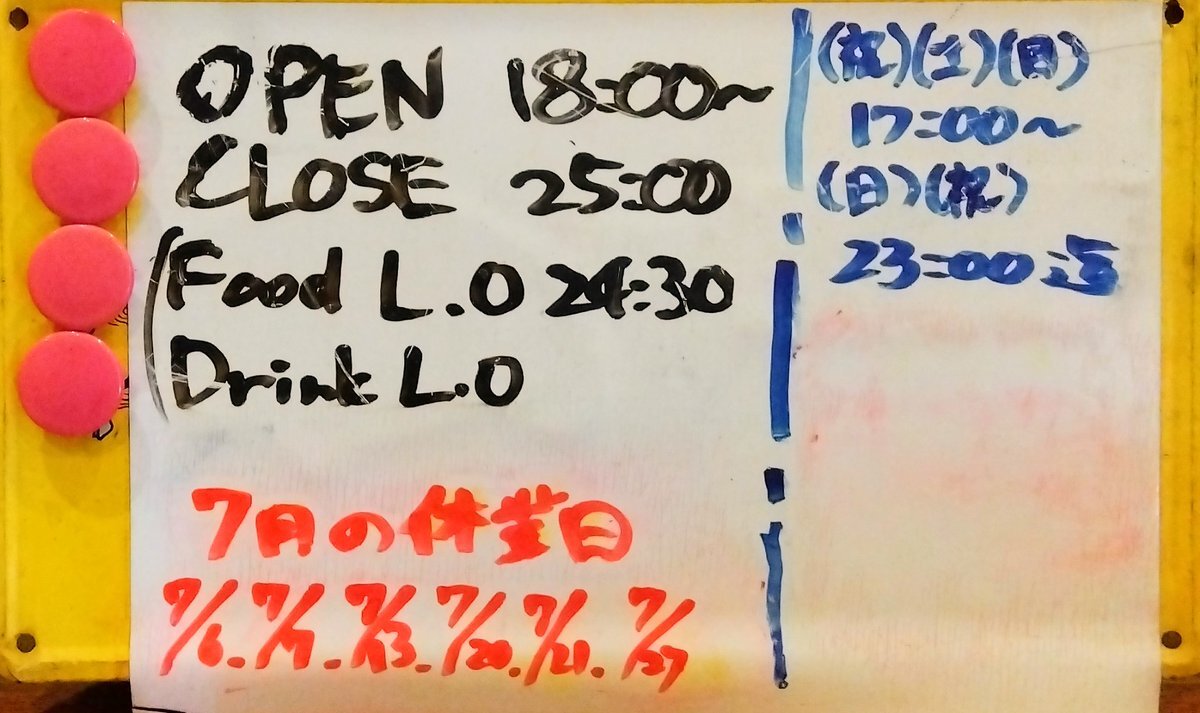 OPEN 18:00~
CLOSE 25:00
(Food L.O 24:30
Drink L.O
(祝)(土)(日)
17:00~
(日)(祝)
23:00迄
7月の休業日
7/6. 7/7. 7/13. 7/20. 7/21. 7/27